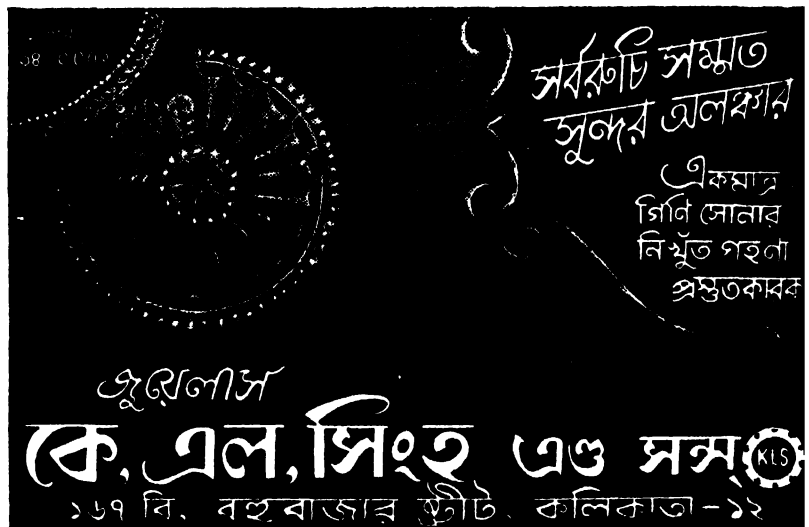 সর্বরুচি সম্মত
সুন্দর অলঙ্কার
একমাত্র
গিণি সোনার
নিখুঁত গহণা
প্রস্তুতকারক
জুয়েলার্স
কে. এল. সিংহ এণ্ড সন্স
KLS
১৬৭ বি. বহুবাজার ষ্ট্রীট. কলিকাতা-১২